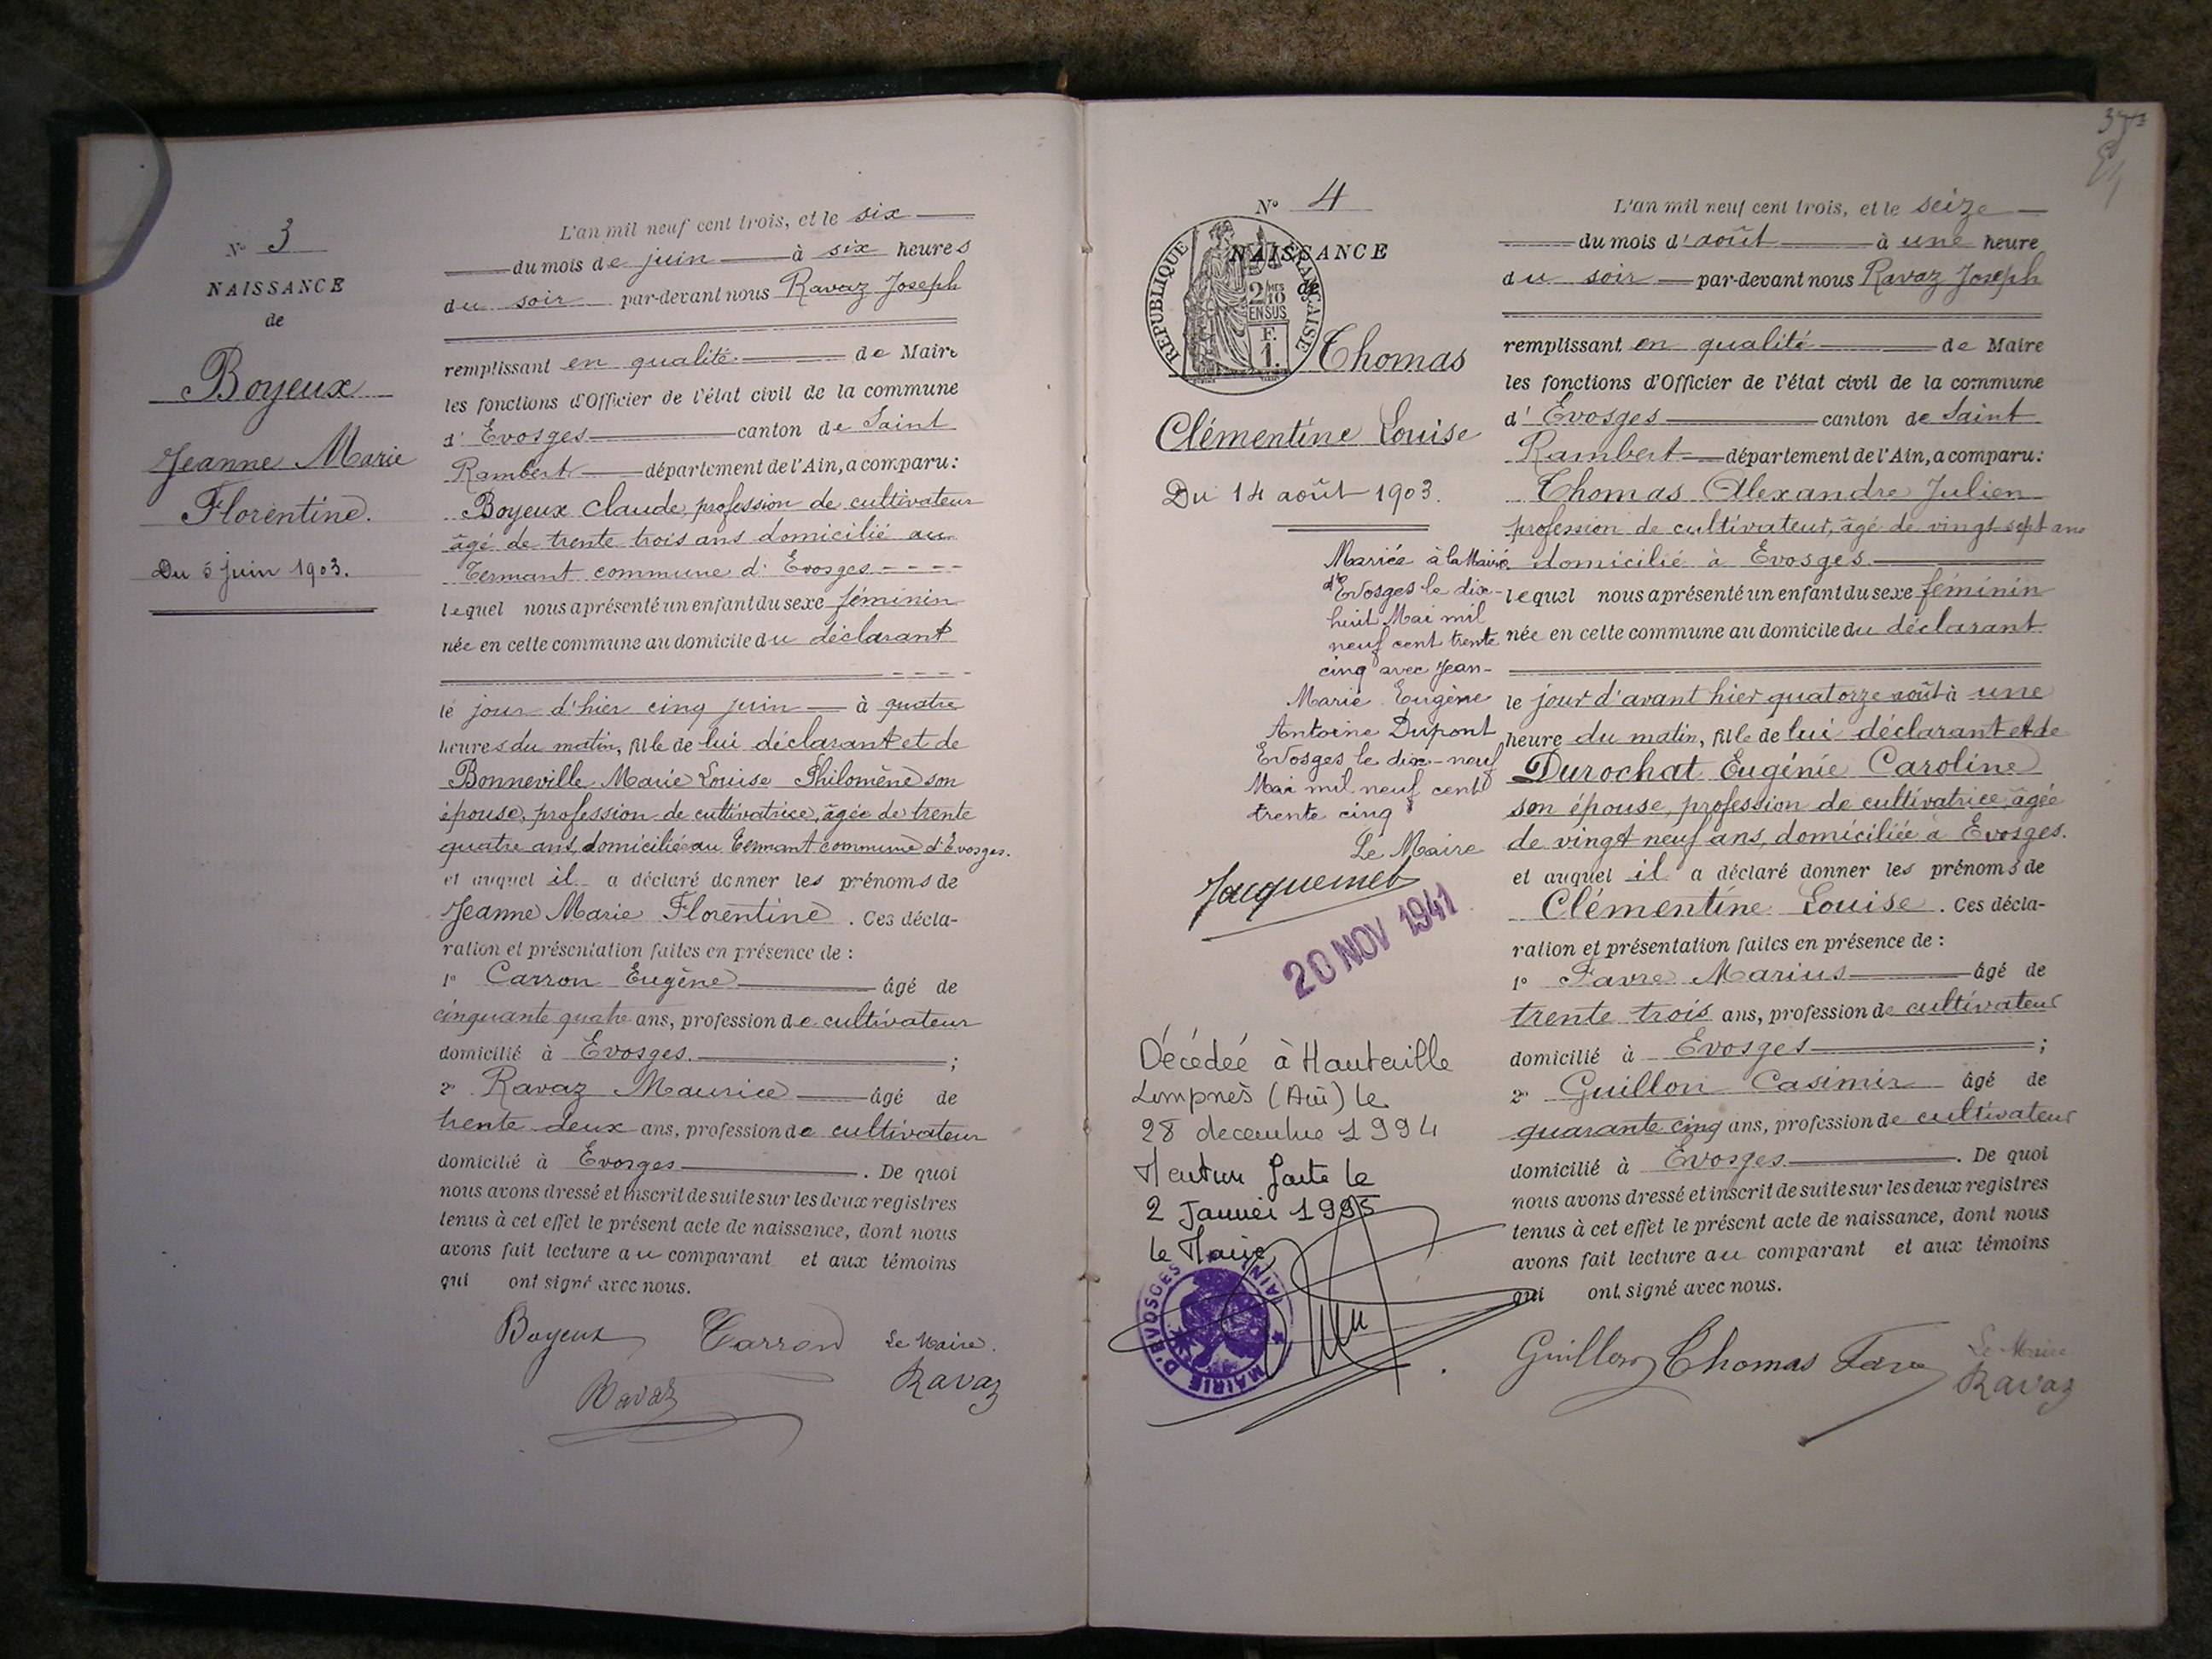 N° 3
NAISSANCE
de
Boyeux
Jeanne Marie
Florentine.
Du 5 juin 1903.
L'an mil neuf cent trois, et le six
du mois de juin à six heures
du soir par-devant nous Ravaz Joseph
remplissant en qualité de Maire
les fonctions d'Officier de l'état civil de la commune
d'Evosges canton de Saint
Rambert département de l'Ain, a comparu:
Boyeux Claude, profession de cultivateur
âgé de trente trois ans domicilié au
commune d'Evosges
lequel nous a présenté un enfant du sexe féminin
née en cette commune au domicile du déclarant
le jour d'hier cinq juin à quatre
heures du matin, fille de lui déclarant et de
Bonneville Marie Louise Philomène son
épouse, profession de cultivatrice, âgée de trente
quatre ans, domiciliée au commune d'Evosges.
et auquel il a déclaré donner les prénoms de
Jeanne Marie Florentine. Ces décla-
ration et présentation faites en présence de :
1° Carron Eugène âgé de
cinquante quatre ans, profession de cultivateur
domicilié à Evosges. ;
2° Ravaz Maurice âgé de
trente deux ans, profession de cultivateur
domicilié à Evosges. De quoi
nous avons dressé et inscrit de suite sur les deux registres
tenus à cet effet le présent acte de naissance, dont nous
avons fait lecture au comparant et aux témoins
qui ont signé avec nous.
Boyeux Carron Le Maire.
Ravaz Ravaz
N° 4
NAISSANCE
de
REPUBLIQUE FRANÇAISE
2/10 MES
EN SUS
F.
1.
Thomas
Clémentine Louise
Du 14 août 1903.
Mariée à la Mairie
d'Evosges le dix-
huit Mai mil
neuf cent trente
cinq avec Jean-
Marie Eugène
Antoine Dupont
Evosges le dix-neuf
Mai mil neuf cent
trente cinq
Le Maire
Jacquemet
20 NOV 1941
Décédée à Hauteville
Lompnès (Ain) le
28 decembre 1994
Mention faite le
2 Janvier 1995
le Maire
MAIRIE D'EVOSGES (AIN)
L'an mil neuf cent trois, et le seize
du mois d'août à une heure
du soir par-devant nous Ravaz Joseph
remplissant en qualité de Maire
les fonctions d'Officier de l'état civil de la commune
d'Evosges canton de Saint
Rambert département de l'Ain, a comparu:
Thomas Alexandre Julien
profession de cultivateur, âgé de vingt sept ans
domicilié à Evosges
lequel nous a présenté un enfant du sexe féminin
née en cette commune au domicile du déclarant
le jour d'avant hier quatorze août à une
heure du matin, fille de lui déclarant et de
Durochat Eugénie Caroline
son épouse, profession de cultivatrice, âgée
de vingt neuf ans, domiciliée à Evosges.
et auquel il a déclaré donner les prénoms de
Clémentine Louise. Ces décla-
ration et présentation faites en présence de :
1° Favre Marius âgé de
trente trois ans, profession de cultivateur
domicilié à Evosges ;
2° Guillon Casimir âgé de
quarante cinq ans, profession de cultivateur
domicilié à Evosges. De quoi
nous avons dressé et inscrit de suite sur les deux registres
tenus à cet effet le présent acte de naissance, dont nous
avons fait lecture au comparant et aux témoins
qui ont signé avec nous.
Guillon Thomas Le Maire
Ravaz